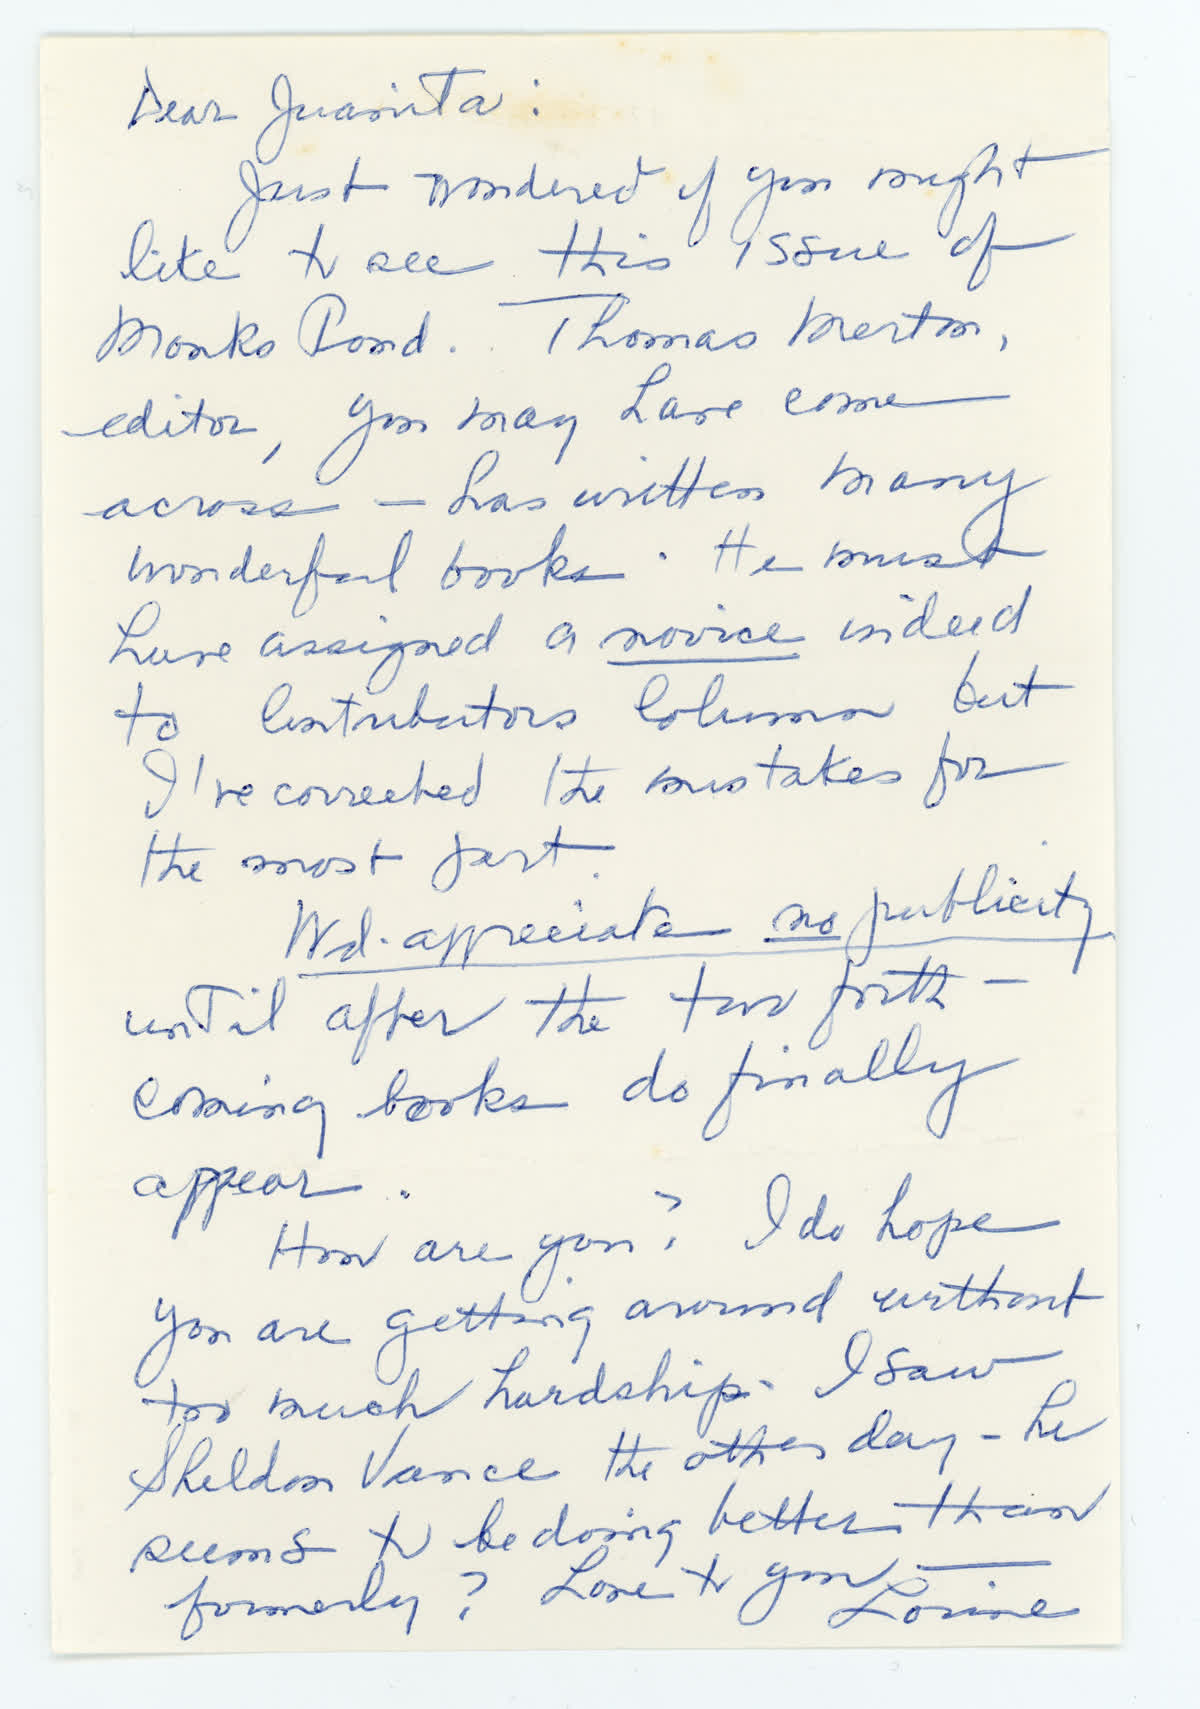 Dear Juanita:
Just wondered if you might
like to see this issue of
Monks Pond. Thomas Merton,
editor, you may have come
across – has written many
wonderful books. He must
have assigned a novice indeed
to Contributors Column but
I've corrected the mistakes for
the most part.
Wd. appreciate no publicity
until after the two forth-
coming books do finally
appear.
How are you? I do hope
you are getting around without
too much hardship. I saw
Sheldon Vance the other day – he
seems to be doing better than
formerly? Love to you –
Lorine